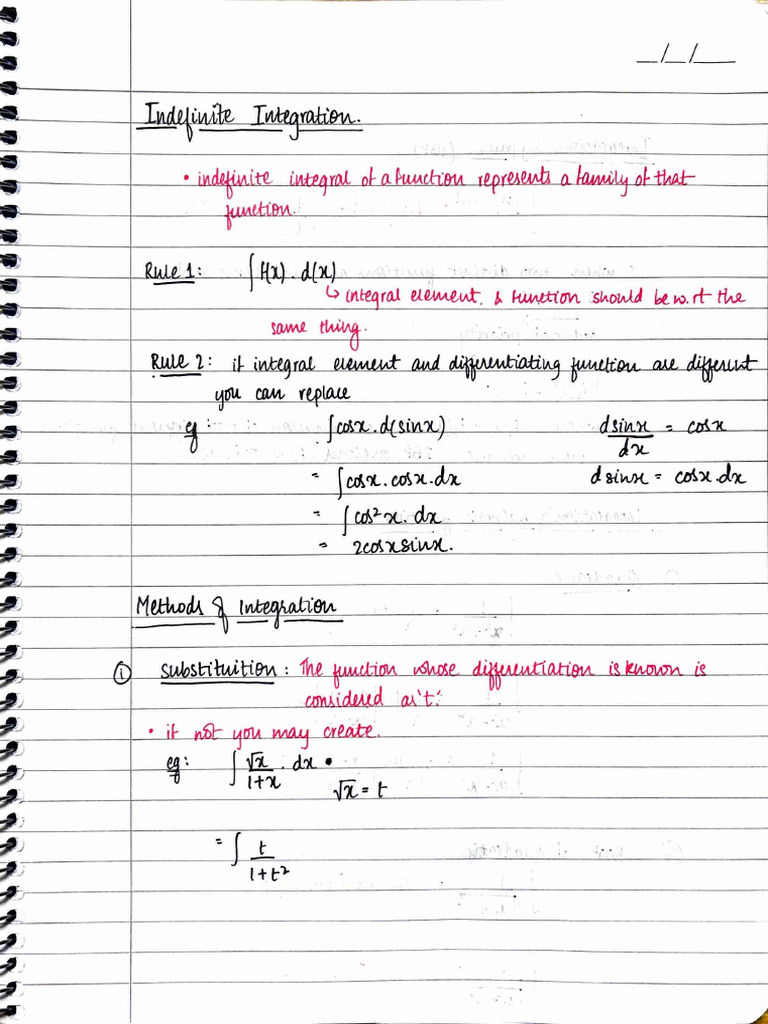 _/_/__
Indefinite Integration.
• indefinite integral of a function represents a family of that
function.
Rule 1: ∫f(x). d(x)
↳ integral element & function should be w.r.t the
same thing.
Rule 2: if integral element and differentiating function are different
you can replace
eg: ∫cosx.d(sinx) dsinx/dx = cosx
= ∫cosx.cosx.dx dsinx = cosx.dx
= ∫cos²x.dx
= 2cosxsinx.
Methods of Integration
① Substituition: The function whose differentiation is known is
considered as 't'.
• if not you may create.
eg: ∫√x/1+x . dx •
√x = t
= ∫t/1+t²